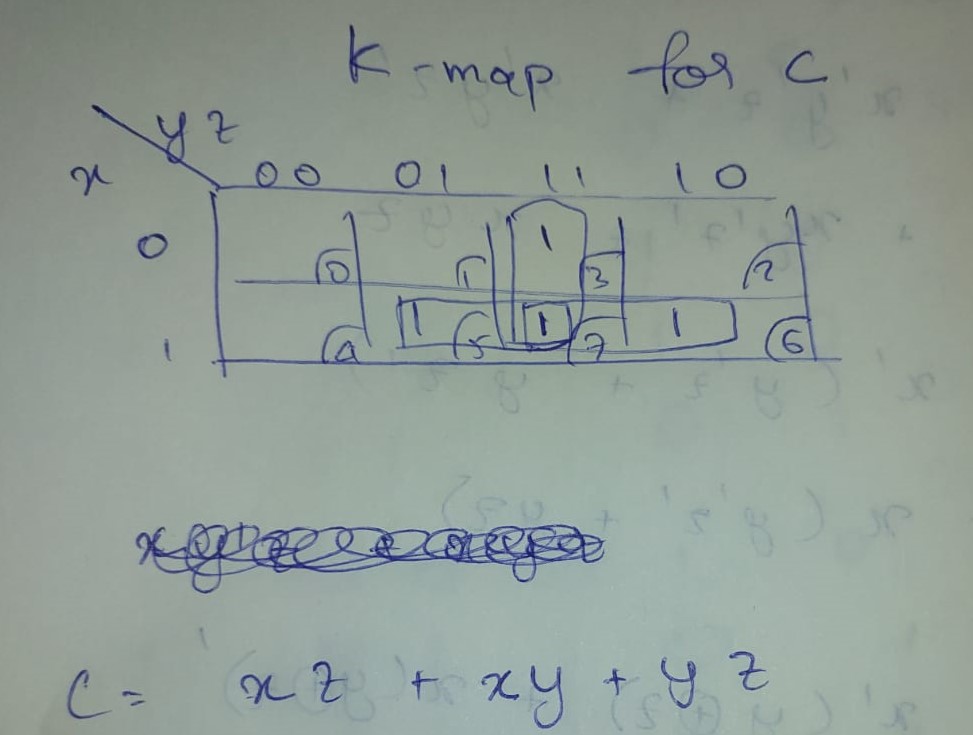 K-map for C
yz
x 00 01 11 10
0 0 1 1 3 2
1 4 1 5 1 7 1 6
C = xz + xy + yz